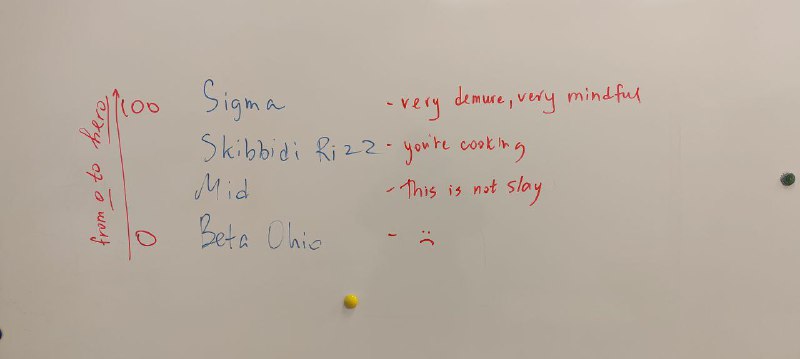 from 0 to hero
100 Sigma - very demure, very mindful
Skibbidi Rizz - you're cooking
Mid - This is not slay
0 Beta Ohio - :(